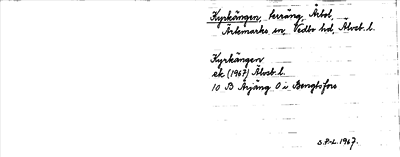 Kyrkängen, terräng, Ärbol,
Ärtemarks sn Vedbo hd, Älvsb. l.
Kyrkängen
ek (1967) Älvsb. l.
10 B Årjäng O i Bengtsfors
S.P-L. 1967.